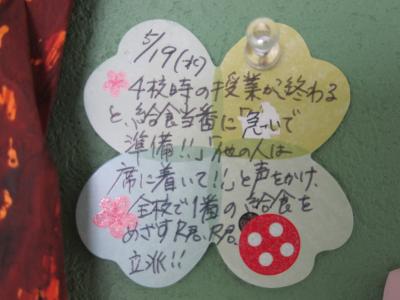 5/19(水)
4校時の授業が終わる
と、給食当番に「急いで
準備!!」「他の人は
席に着いて!!」と声をかけ、
全校で1番の給食を
めざすR君、R君。
立派!!